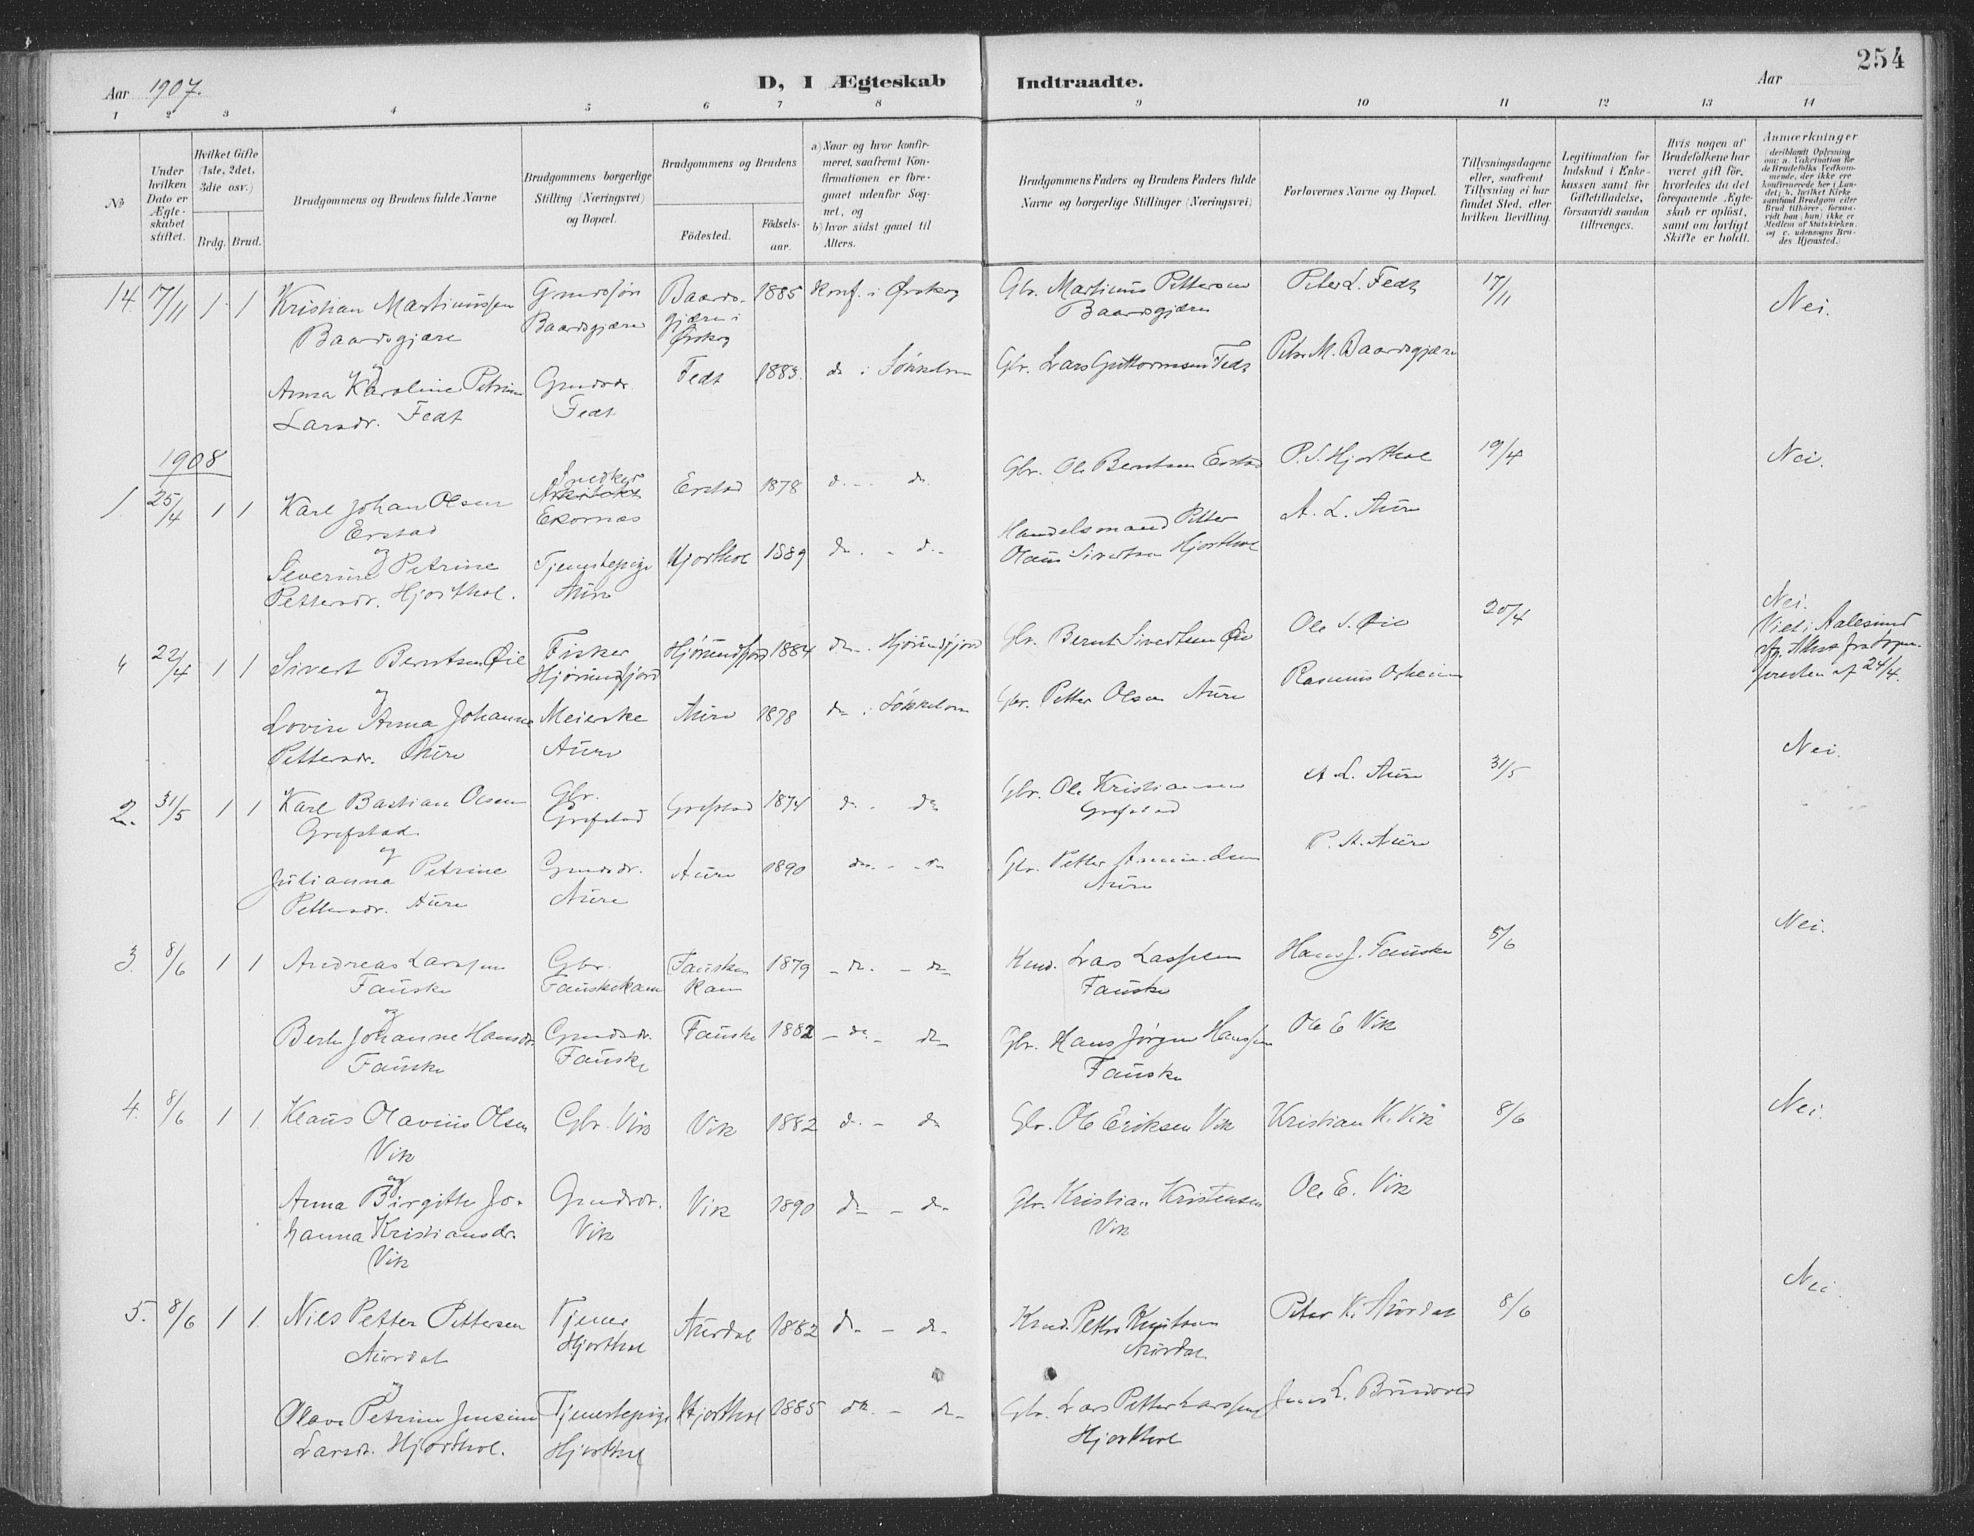 254
Aar 1907.
D, I Ægteskab Indtraadte.
Aar
1 2 3 4 5 6 7 8 9 10 11 12 13 14
№
Under hvilken Dato er Ægteskabet stiftet.
Hvilket Gifte (1ste, 2det, 3die osv.)
Brdg. Brud.
Brudgommens og Brudens fulde Navne
Brudgommens borgerlige Stilling (Næringsvei) og Bopæl.
Brudgommens og Brudens
Fødested.
Fødselsaar.
a) Naar og hvor konfirmeret, saafremt Konfirmationen er foregaaet udenfor Sognet, og
b) hvor sidst gaaet til Alters.
Brudgommens Faders og Brudens Faders fulde Navne og borgerlige Stillinger (Næringsvei)
Forlovernes Navne og Bopæl.
Tillysningsdagene eller, saafremt Tillysning ei har fundet Sted, efter hvilken Bevilling.
Legitimation for Indskud i Enkekassen samt for Giftetilladelse, forsaavidt saadan tiltrænges.
Hvis nogen af Brudefolkene har været gift før, hvorledes da det foregaaende Ægteskab er opløst, samt om lovligt Skifte er holdt.
Anmærkninger
(deriblandt Oplysning om: a. Vakcination for de Brudefolks Vedkommende, der ikke ere konfirmerede her i Landet; b. hvilket Kirkesamfund Brudgom eller Brud tilhører, forsaavidt han (hun) ikke er Medlem af Statskirken, og c. udensogns Brudes Hjemsted.)
14. 17/11 1 1 Kristian Martinussen Baardsgjære
Grudssøn Baardsgjære
Baardsgjære i Ørskog 1885 Konf. i Ørskog
Gbr. Martinus Pettersen Baardsgjære
Peter L. Fedt 17/11 Nei.
og
Anna Karoline Petrine Larsdr. Fedt
Grudsdr. Fedt
Fedt 1883. do i Søkkelven
Gbr. Lars Guttormsen Fedt
Peter M. Baardsgjære
1908
1 25/4 1 1 Karl Johan Olsen Erstad
Snedker Ekornæs
Erstad 1878 d. - do
Gbr. Ole Berntsen Erstad
P. S. Hjorthol 19/4 Nei.
og
Severine Petrine Pettersdr. Hjorthol.
Tjenestepige Aure
Hjorthol 1889 do - do
Handelsmand Petter Olaus Sivertsen Hjorthol
A. L. Aure
" 22/4 1 1 Sivert Berntsen Øie
Fisker Hjørundfjord
Hjørundfjord 1884 do - Hjørundfjord
Gbr. Bernt Sivertsen Øie
Ole S. Øie 20/4
Nei.
Viet i Aalesund
flg. Attest fra Sogne-
presten af 24/4.
og
Lovise Anna Johanne Pettersdr. Aure
Meierske Aure
Aure 1878 do i Søkkelven
Gbr. Petter Olsen Aure
Rasmus Osheim
2. 31/5 1 1 Karl Bastian Olsen Grefstad
Gbr. Grefstad
Grefstad 1874 do - do
Gbr. Ole Kristiansen Grefstad
A. L. Aure 31/5 Nei.
og
Julianna Petrine Pettersdr. Aure
Grudsdr. Aure
Aure 1890 do - do
Gbr. Petter Amundsen Aure
P. A. Aure
3. 8/6 1 1 Andreas Larssen Fauske
Gbr. Fauskekam
Fauskekam 1879 - do - do
Kaud. Lars Larssen Fauske
Hans J. Fauske 5/6 Nei.
og
Berte Johanne Hansdr. Fauske
Grudsdr. Fauske
Fauske 1882 - do - do
Gbr. Hans Jørgen Hanssen Fauske
Ole E. Vik
4. 8/6 1 1. Klaus Olavius Olsen Vik
Gbr. Vik
Vik 1882 d. - do
Gbr. Ole Eriksen Vik
Kristian K. Vik 8/6 Nei.
og
Anna Birgitte Johanna Kristiansdr. Vik
Grudsdr. Vik
Vik 1890 do - do
Gbr. Kristian Kristensen Vik
Ole E. Vik
5. 8/6 1 1. Nils Petter Pettersen Aurdal
Tjener Hjorthol
Aurdal 1882 do - do
Kaud. Petter Knutsen Aurdal
Peter K. Aurdal 8/6 Nei.
og
Olave Petrine Jensine Larsdr. Hjorthol.
Tjenestepige Hjorthol
Hjorthol 1885 do - do
Gbr. Lars Petter Larssen Hjorthol
Jens L. Brunvold